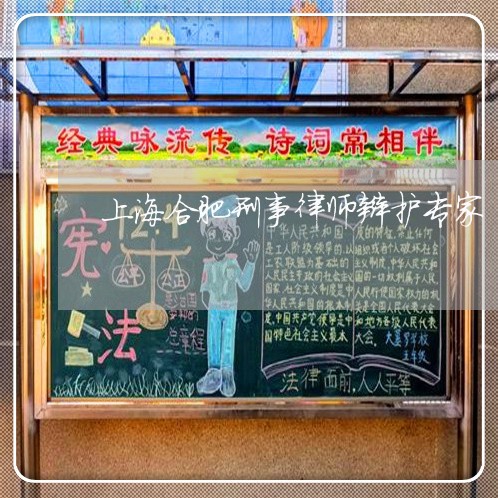 经典咏流传 诗词常相伴
上海合肥刑事律师辩护专家
宪
法
公平
公正
总章程
中华人民共和国
是工人阶级领导的,以
工农联盟为基础的
人民民主专政的社会主义
国家,社会主义制度是中
华人民共和国的根本制
度,中国共产党领导是中
国特色社会主义最本
质的特征,禁止任何
组织或者个人破坏社会
主义制度,中华人民共和
国的一切权利属于人民,
人民行使国家权力的机
关是全国人民代表大会
和地方各级人民代表
大会。
五年级
法律面前,人人平等